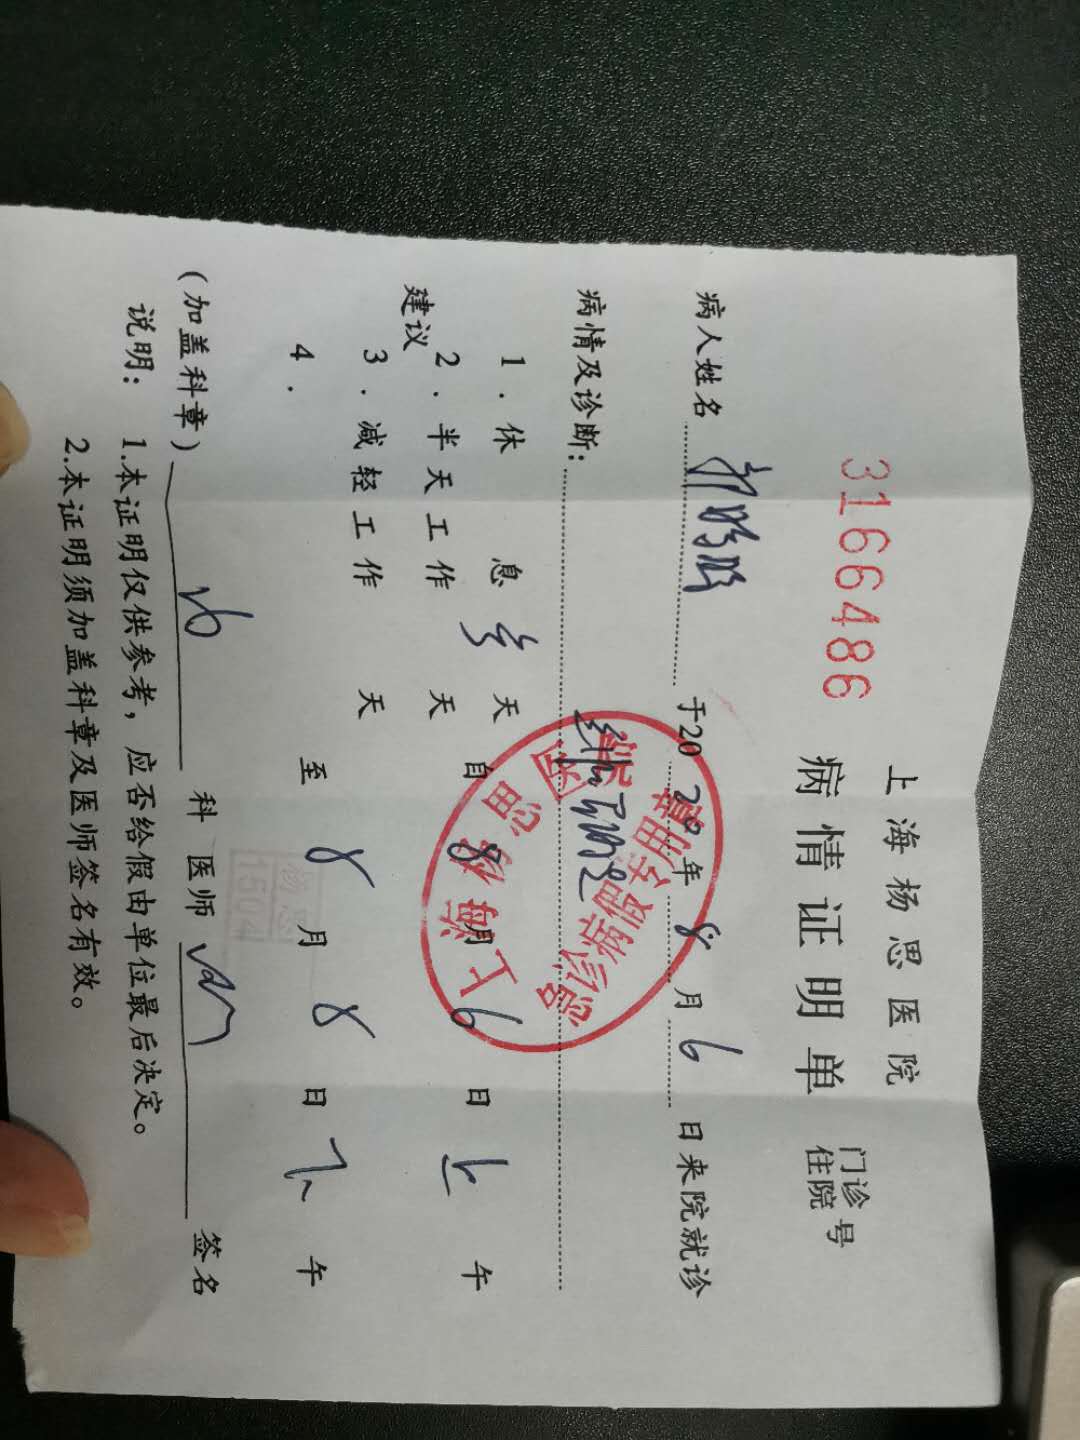 3166486
上海杨思医院
病情证明单 门诊 住院 号
病人姓名 于2020年8月6日来院就诊
病情及诊断:
建议
1.休息 天 自8月6日上午
2.半天工作 天
3.减轻工作 天
4. 至8月8日下午
(加盖科章) 科 医师 签名
说明: 1.本证明仅供参考,应否给假由单位最后决定。
2.本证明须加盖科章及医师签名有效。
上海杨思医院
急诊病假专用章
杨思
1504